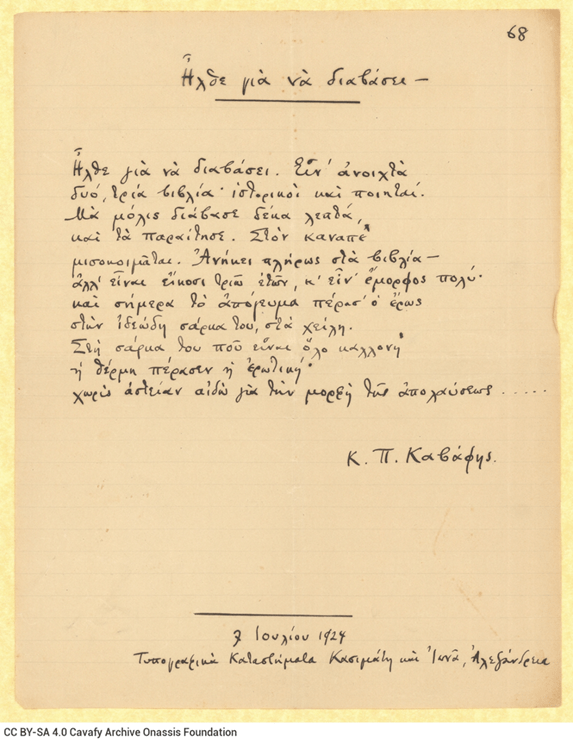 68
Ἦλθε γιὰ νὰ διαβάσει —
Ἦλθε γιὰ νὰ διαβάσει. Εἶν' ἀνοιχτὰ
δυό, τρία βιβλία· ἱστορικοὶ καὶ ποιηταί.
Μὰ μόλις διάβασε δέκα λεπτά,
καὶ τὰ παραίτησε. Στὸν καναπὲ
μισοκοιμᾶται. Ἀνήκει πλήρως στὰ βιβλία —
ἀλλ' εἶναι εἴκοσι τριῶ ἐτῶν, κ' εἶν' ἔμορφος πολύ·
καὶ σήμερα τὸ ἀπόγευμα πέρασ' ὁ ἔρως
στὴν ἰδεώδη σάρκα του, στὰ χείλη.
Στὴ σάρκα του ποῦ εἶναι ὅλο καλλονὴ
ἡ θέρμη πέρασεν ἡ ἐρωτική·
χωρὶς ἀστείαν αἰδῶ γιὰ τὴν μορφὴ τῆς ἀπολαύσεως .....
Κ. Π. Καβάφης.
7 Ιουλίου 1924
Τυπογραφικὰ Καταστήματα Κασιμάτη καὶ Ἰωνᾶ, Ἀλεξάνδρεια
CC BY-SA 4.0 Cavafy Archive Onassis Foundation